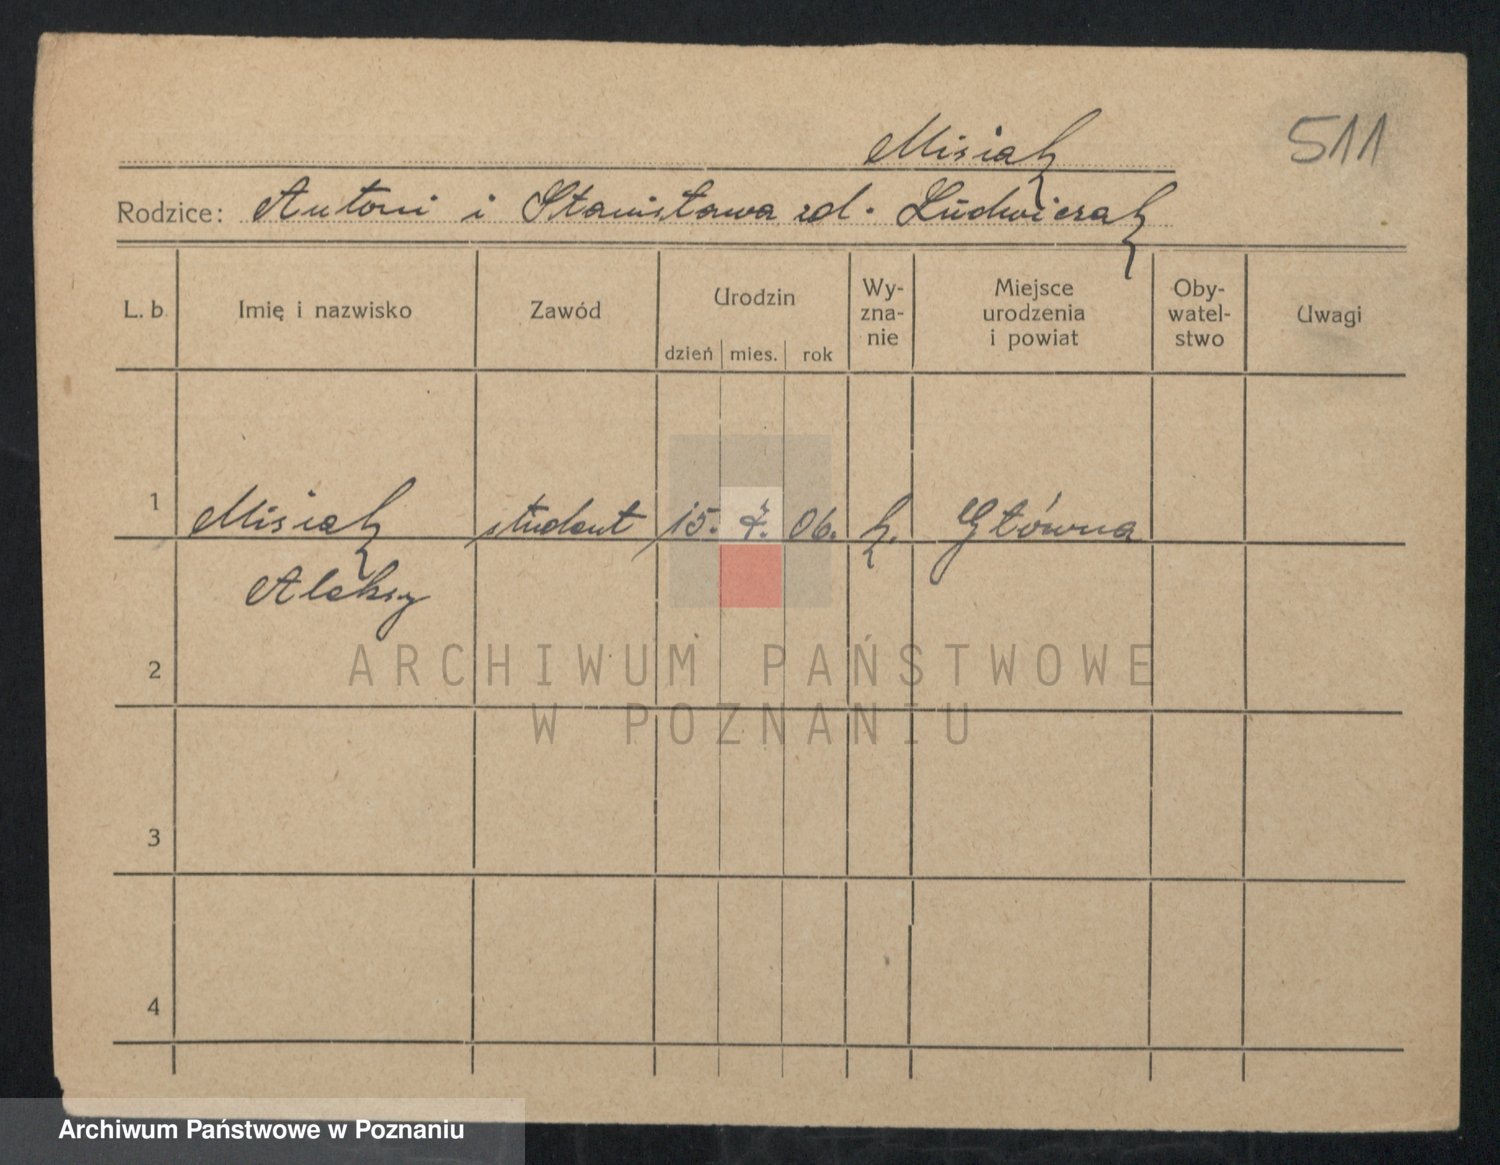 Misiak
511
Rodzice: Antoni i Stanisława zd. Ludwiczak
L. b Imię i nazwisko Zawód Urodzin Wy- Miejsce Oby- Uwagi
zna- urodzenia watel-
nie i powiat stwo
dzień mies. rok
1 Misiak student 15. 7. 06. k. Główna
Aleksy
2
ARCHIWUM PAŃSTWOWE
W POZNANIU
3
4
Archiwum Państwowe w Poznaniu